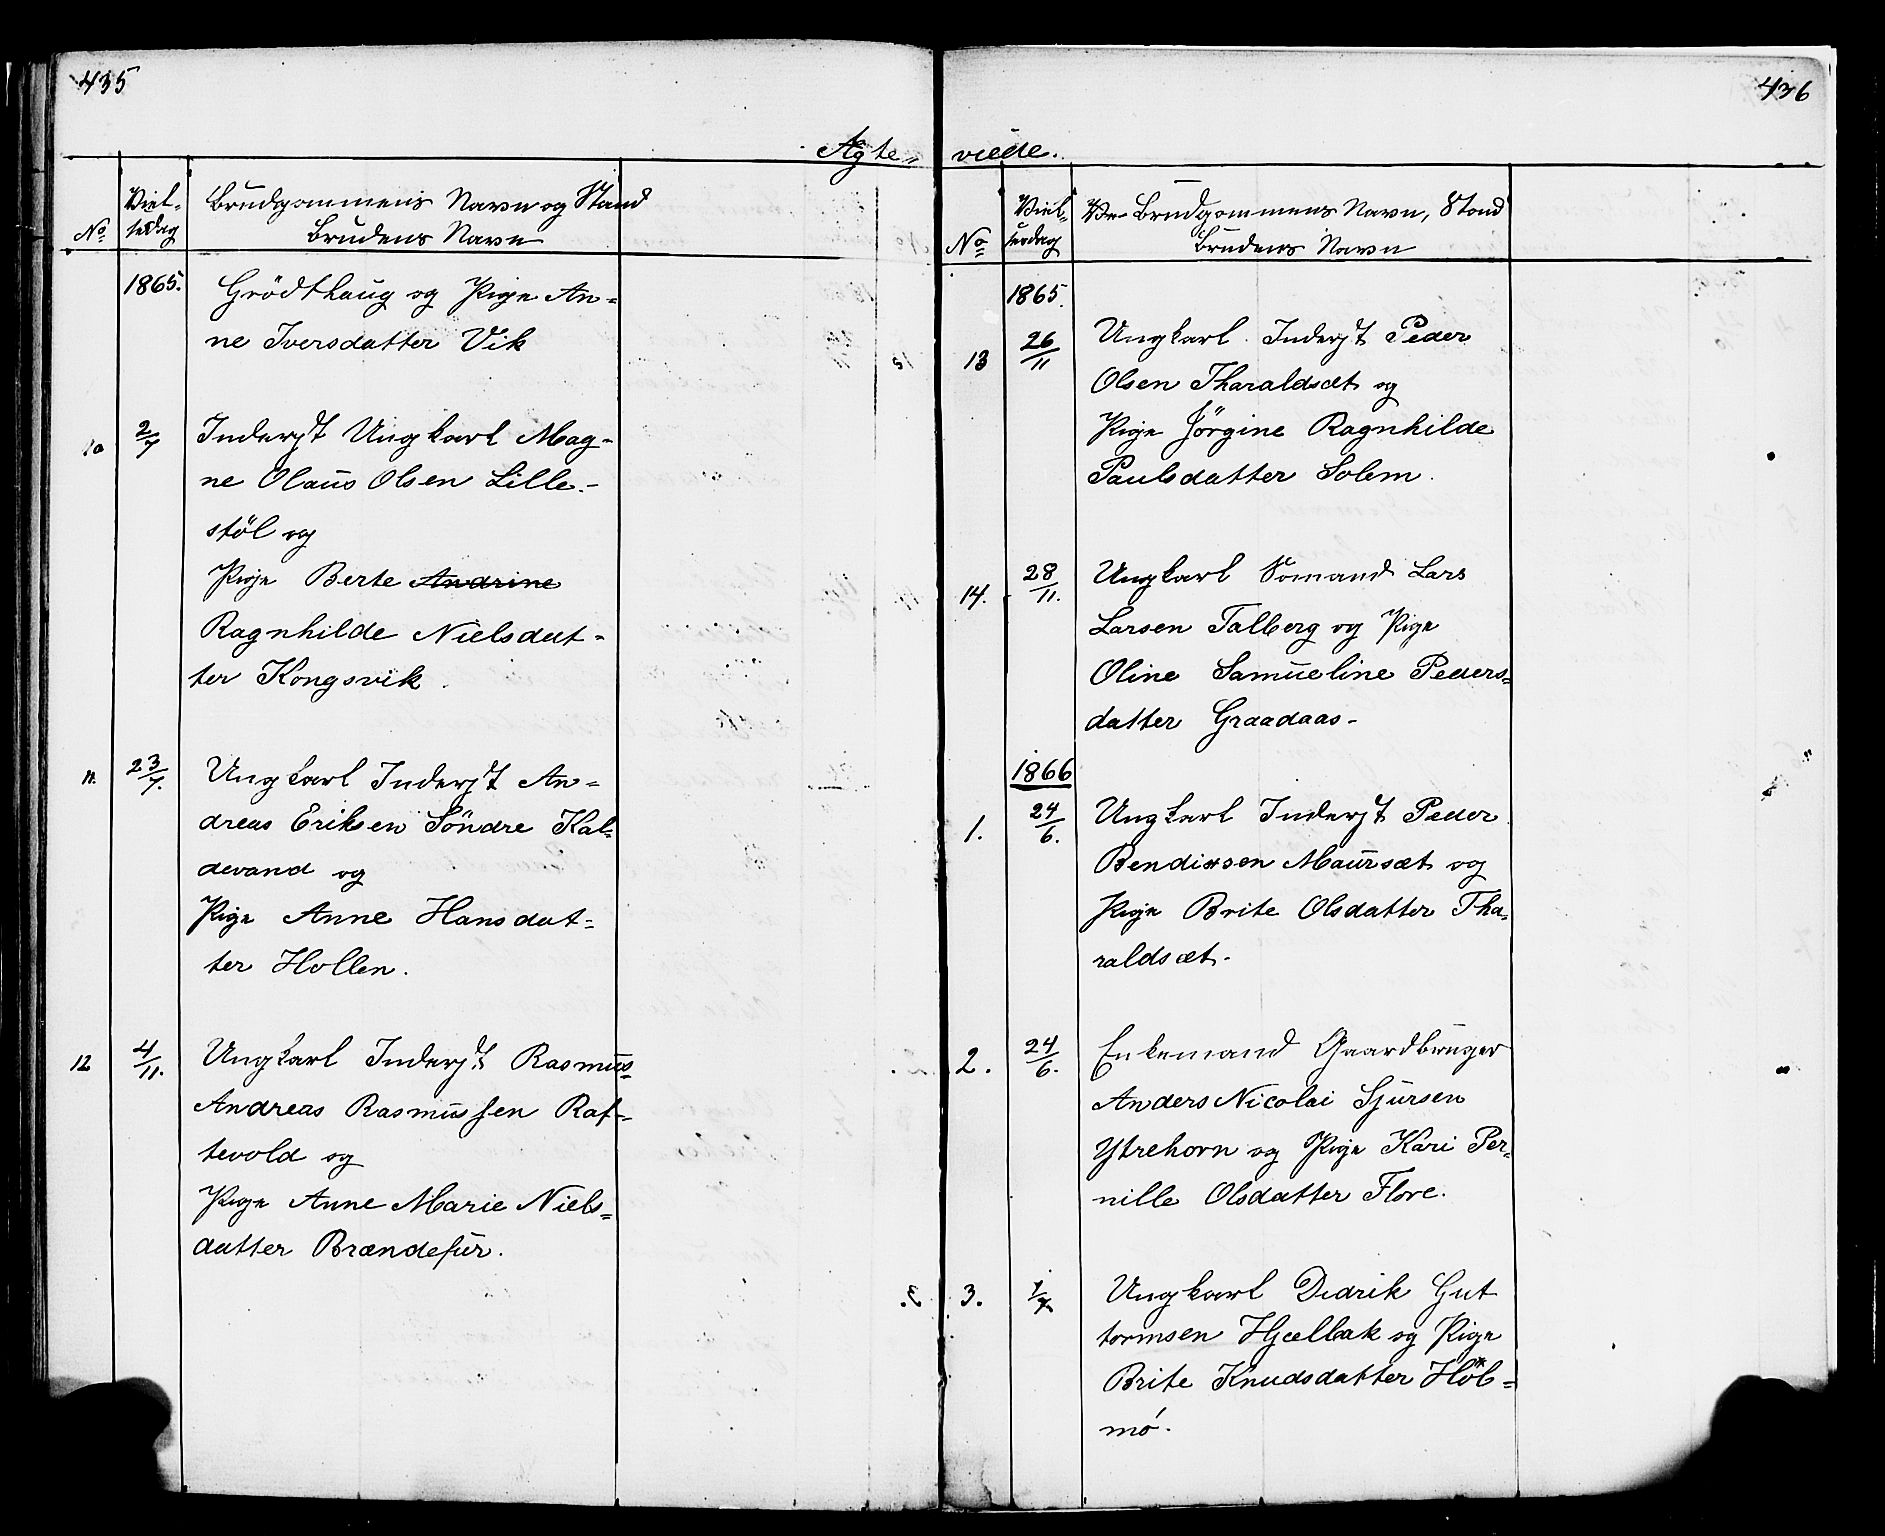 435
Agte-
No
Viel-
sedag
Brudgommens Navn og Stand
Brudens Navn
1865.
Grödthaug og Pige An-
ne Iversdatter Vik
10
2/7
Inderst Ungkarl Mag-
ne Olaus Olsen Lille-
stöl og
Pige Berte Andrine
Ragnhilde Nielsdat-
ter Kongsvik.
11.
23/7.
Ungkarl Inderst An-
dreas Eriksen Söndre Kal-
devand og
Pige Anne Hansdat-
ter Hollen.
12
4/11.
Ungkarl Inderst Rasmus
Andreas Rasmussen Raf-
tevold og
Pige Anne Marie Niels-
datter Brændefur.
436
viede.
No
Viel-
sesdag
Brudgommens Navn, Stand
Brudens Navn
1865.
13
26/11
Ungkarl Inderst Peder
Olsen Tharaldsæt og
Pige Jörgine Ragnhilde
Paulsdatter Solem.
14.
28/11.
Ungkarl Somand Lars
Larsen Talberg og Pige
Oline Samueline Peders-
datter Graadaas-
1866
1.
24/6.
Ungkarl Inderst Peder
Bendixsen Maursæt og
Pige Brite Olsdatter Tha-
raldsæt.
2.
24/6.
Enkemand Gaardbruger
Anders Nicolai Sjursen
Ytrehorn og Pige Kari Per-
nille Olsdatter Flore.
3.
1/7
Ungkarl Didrik Gut
tormsen Hjellbak og Pige
Brite Knudsdatter Hol-
mö.